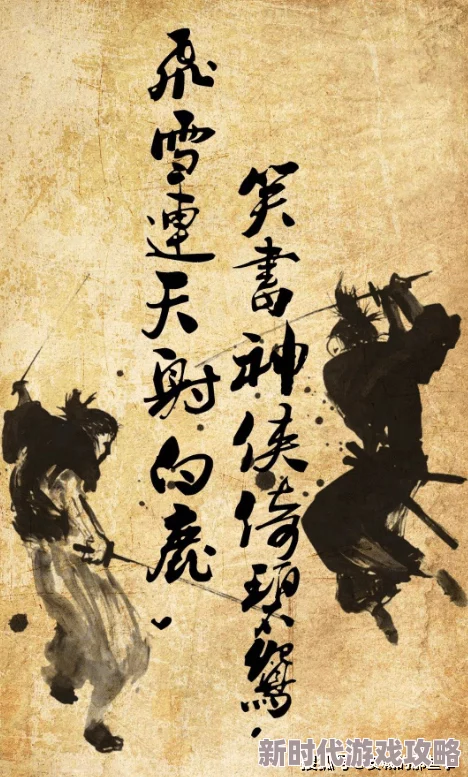 飛雪連天射白鹿、
笑書神侠倚碧鴛，
新时代游戏攻略